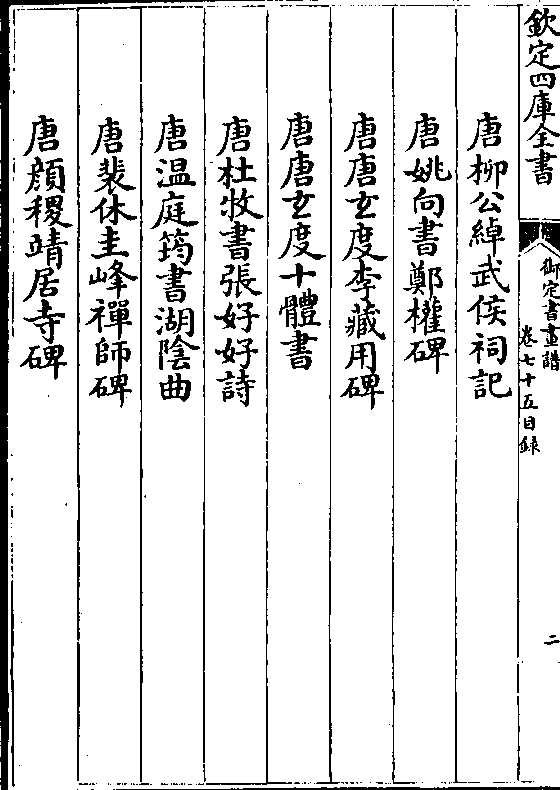 欽定四庫全書
御定書畫譜
卷七十五目録
二
唐柳公綽武侯祠記
唐姚向書鄭權碑
唐唐玄度李藏用碑
唐唐玄度十體書
唐杜牧書張好好詩
唐温庭筠書湖陰曲
唐裴休圭峰禪師碑
唐顔稷靖居寺碑